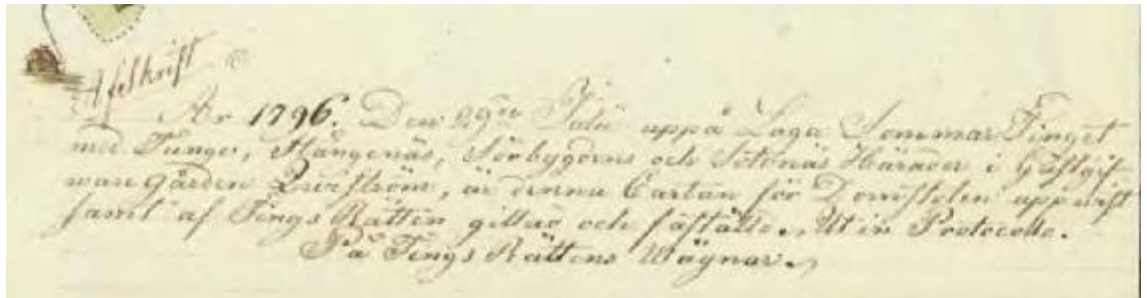 Afskrift
År 1796. Den 29de Julii uppå Laga Sommar Tinget
med Tunge, Stångenäs, Sörbygdens och Sotenäs Härader i Gästgif-
ware gården Qwiström, är denna Cartan för Domstolen uppwist
samt af Tings Rätten gillad och fastställte, Ut in Protocollo.
På Tings Rättens Wägnar.